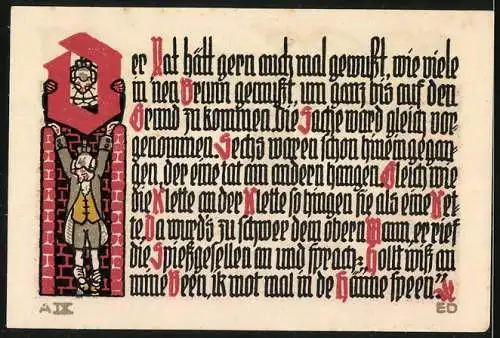 Der Rat hätt gern auch mal gewußt, wie viele
in nen Brunn gemußt, um ganz bis auf den
Grund zu kommen. Die Sache ward gleich vor-
genommen. Sechs waren schon hineingegan-
gen, der eine tat am andern hangen. Gleich wie
die Klette an der Klette so hingen sie als eine Ket-
te. Da wurd's zu schwer dem obern Mann, er rief
die Spießgesellen an und sprach: "Hollt wiß an
mine Been, ik mot mal in de Hänne speen"
A IX
ED